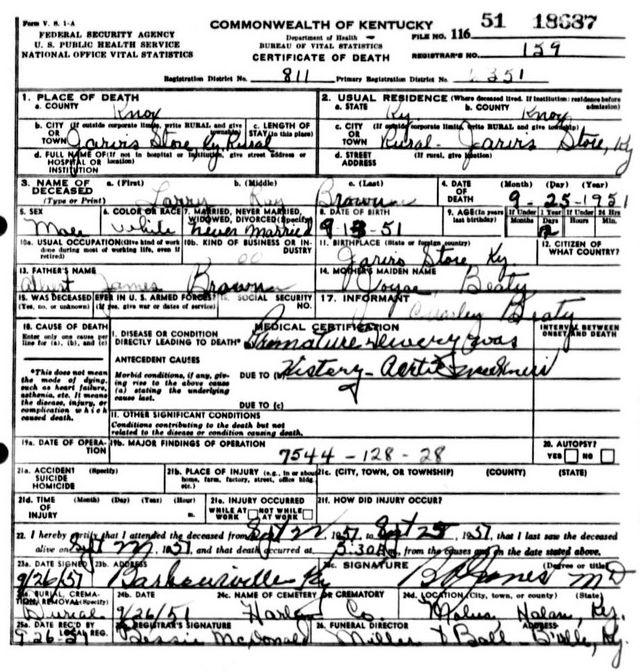 Form V. S. 1-A
FEDERAL SECURITY AGENCY
U. S. PUBLIC HEALTH SERVICE
NATIONAL OFFICE VITAL STATISTICS
COMMONWEALTH OF KENTUCKY
Department of Health
BUREAU OF VITAL STATISTICS
CERTIFICATE OF DEATH
FILE NO. 116 51 18637
REGISTRAR'S NO. 159
Registration District No. 811 Primary Registration District No. 6351
1. PLACE OF DEATH
a. COUNTY Knox
b. CITY (If outside corporate limits, write RURAL and give township) OR TOWN Jarvis Store Ky Rural
c. LENGTH OF STAY (in this place)
d. FULL NAME OF (If not in hospital or institution, give street address or location) HOSPITAL OR INSTITUTION
2. USUAL RESIDENCE (Where deceased lived. If institution: residence before admission)
a. STATE Ky b. COUNTY Knox
c. CITY (If outside corporate limits, write RURAL and give township) OR TOWN Rural- Jarvis Store, Ky
d. STREET ADDRESS (If rural, give location)
3. NAME OF DECEASED (Type or Print) a. (First) Larry b. (Middle) Ray c. (Last) Brown
4. DATE OF DEATH (Month) (Day) (Year) 9-25-1951
5. SEX Male
6. COLOR OR RACE White
7. MARRIED, NEVER MARRIED, WIDOWED, DIVORCED (Specify) Never Married
8. DATE OF BIRTH 9-13-51
9. AGE (In years last birthday) If Under 1 Year Months Days 12 If Under 24 Hrs Hours Min.
10a. USUAL OCCUPATION (Give kind of work done during most of working life, even if retired)
10b. KIND OF BUSINESS OR INDUSTRY
11. BIRTHPLACE (State or foreign country) Jarvis Store Ky
12. CITIZEN OF WHAT COUNTRY?
13. FATHER'S NAME Albert James Brown
14. MOTHER'S MAIDEN NAME Joyce Beaty
15. WAS DECEASED EVER IN U. S. ARMED FORCES? (Yes, no, or unknown) (If yes, give war or dates of service)
16. SOCIAL SECURITY NO.
17. INFORMANT Beaty
18. CAUSE OF DEATH
Enter only one cause per line for (a), (b), and (c)
*This does not mean the mode of dying, such as heart failure, asthenia, etc. It means the disease, injury, or complication which caused death.
MEDICAL CERTIFICATION
INTERVAL BETWEEN ONSET AND DEATH
I. DISEASE OR CONDITION DIRECTLY LEADING TO DEATH* (a) Premature
ANTECEDENT CAUSES
Morbid conditions, if any, giving rise to the above cause (a) stating the underlying cause last.
DUE TO (b) History-
DUE TO (c)
II. OTHER SIGNIFICANT CONDITIONS
Conditions contributing to the death but not related to the disease or condition causing death.
19a. DATE OF OPERATION
19b. MAJOR FINDINGS OF OPERATION
7544-128-28
20. AUTOPSY? YES NO
21a. ACCIDENT SUICIDE HOMICIDE (Specify)
21b. PLACE OF INJURY (e.g., in or about home, farm, factory, street, office bldg. etc.)
21c. (CITY, TOWN, OR TOWNSHIP) (COUNTY) (STATE)
21d. TIME OF INJURY (Month) (Day) (Year) (Hour) m.
21e. INJURY OCCURRED WHILE AT WORK NOT WHILE AT WORK
21f. HOW DID INJURY OCCUR?
22. I hereby certify that I attended the deceased from Sept , 1951, to Sept 25, 1951, that I last saw the deceased
alive on Sept , 1951, and that death occurred at 5:30 A m., from the causes and on the date stated above.
23a. DATE SIGNED 9/26/51
23b. ADDRESS Barbourville Ky
23c. SIGNATURE Jones MD (Degree or title)
24a. BURIAL, CREMATION, REMOVAL (Specify) Burial
24b. DATE 9/26/51
24c. NAME OF CEMETERY OR CREMATORY Harlan Co.
24d. LOCATION (City, town, or county) (State) Molus, Halan, Ky.
25a. DATE REC'D BY LOCAL REG. 9-26-51
25b. REGISTRAR'S SIGNATURE Bessie McDonald
26. FUNERAL DIRECTOR ADDRESS Miller & Ball - B'ville, Ky.